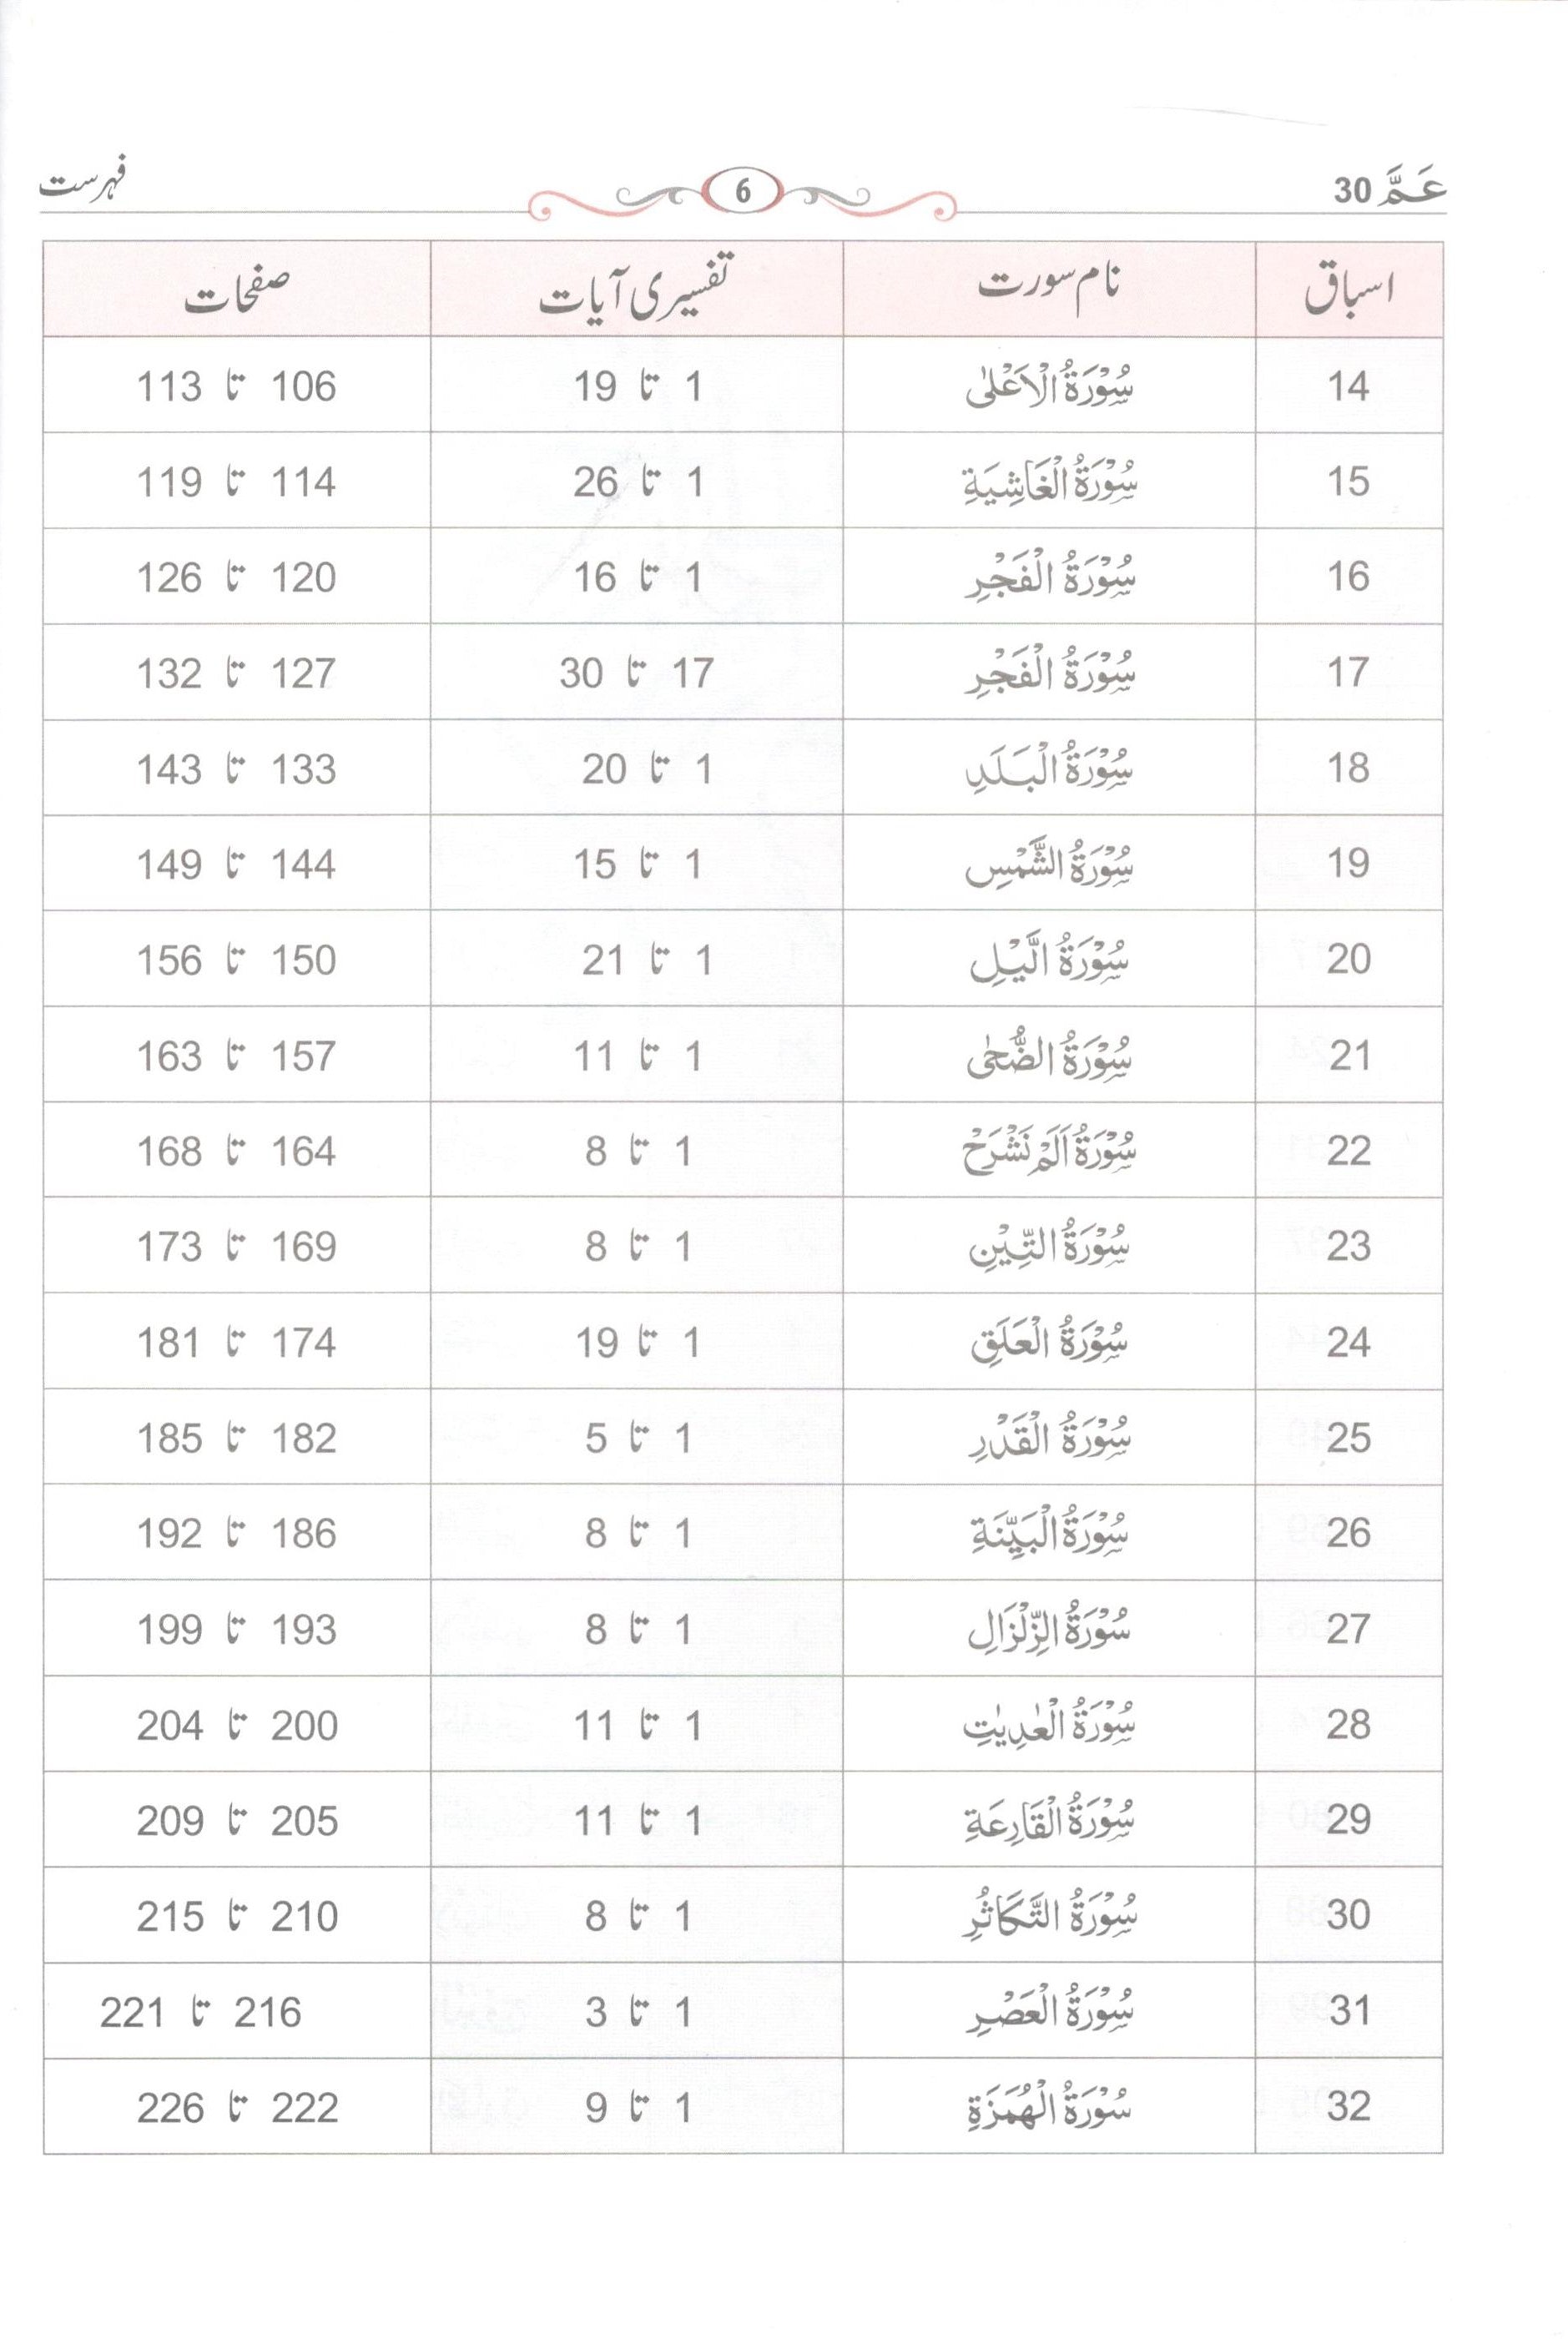 عَمَّ 30 6 فہرست
اسباق نام سورت تفسیری آیات صفحات
14 سُوْرَةُ الْاَعْلٰی 1 تا 19 106 تا 113
15 سُوْرَةُ الْغَاشِیَةِ 1 تا 26 114 تا 119
16 سُوْرَةُ الْفَجْرِ 1 تا 16 120 تا 126
17 سُوْرَةُ الْفَجْرِ 17 تا 30 127 تا 132
18 سُوْرَةُ الْبَلَدِ 1 تا 20 133 تا 143
19 سُوْرَةُ الشَّمْسِ 1 تا 15 144 تا 149
20 سُوْرَةُ الَّیْلِ 1 تا 21 150 تا 156
21 سُوْرَةُ الضُّحٰی 1 تا 11 157 تا 163
22 سُوْرَةُ اَلَمْ نَشْرَحْ 1 تا 8 164 تا 168
23 سُوْرَةُ التِّیْنِ 1 تا 8 169 تا 173
24 سُوْرَةُ الْعَلَقِ 1 تا 19 174 تا 181
25 سُوْرَةُ الْقَدْرِ 1 تا 5 182 تا 185
26 سُوْرَةُ الْبَیِّنَةِ 1 تا 8 186 تا 192
27 سُوْرَةُ الزِّلْزَالِ 1 تا 8 193 تا 199
28 سُوْرَةُ الْعٰدِیٰتِ 1 تا 11 200 تا 204
29 سُوْرَةُ الْقَارِعَةِ 1 تا 11 205 تا 209
30 سُوْرَةُ التَّكَاثُرِ 1 تا 8 210 تا 215
31 سُوْرَةُ الْعَصْرِ 1 تا 3 216 تا 221
32 سُوْرَةُ الْهُمَزَةِ 1 تا 9 222 تا 226